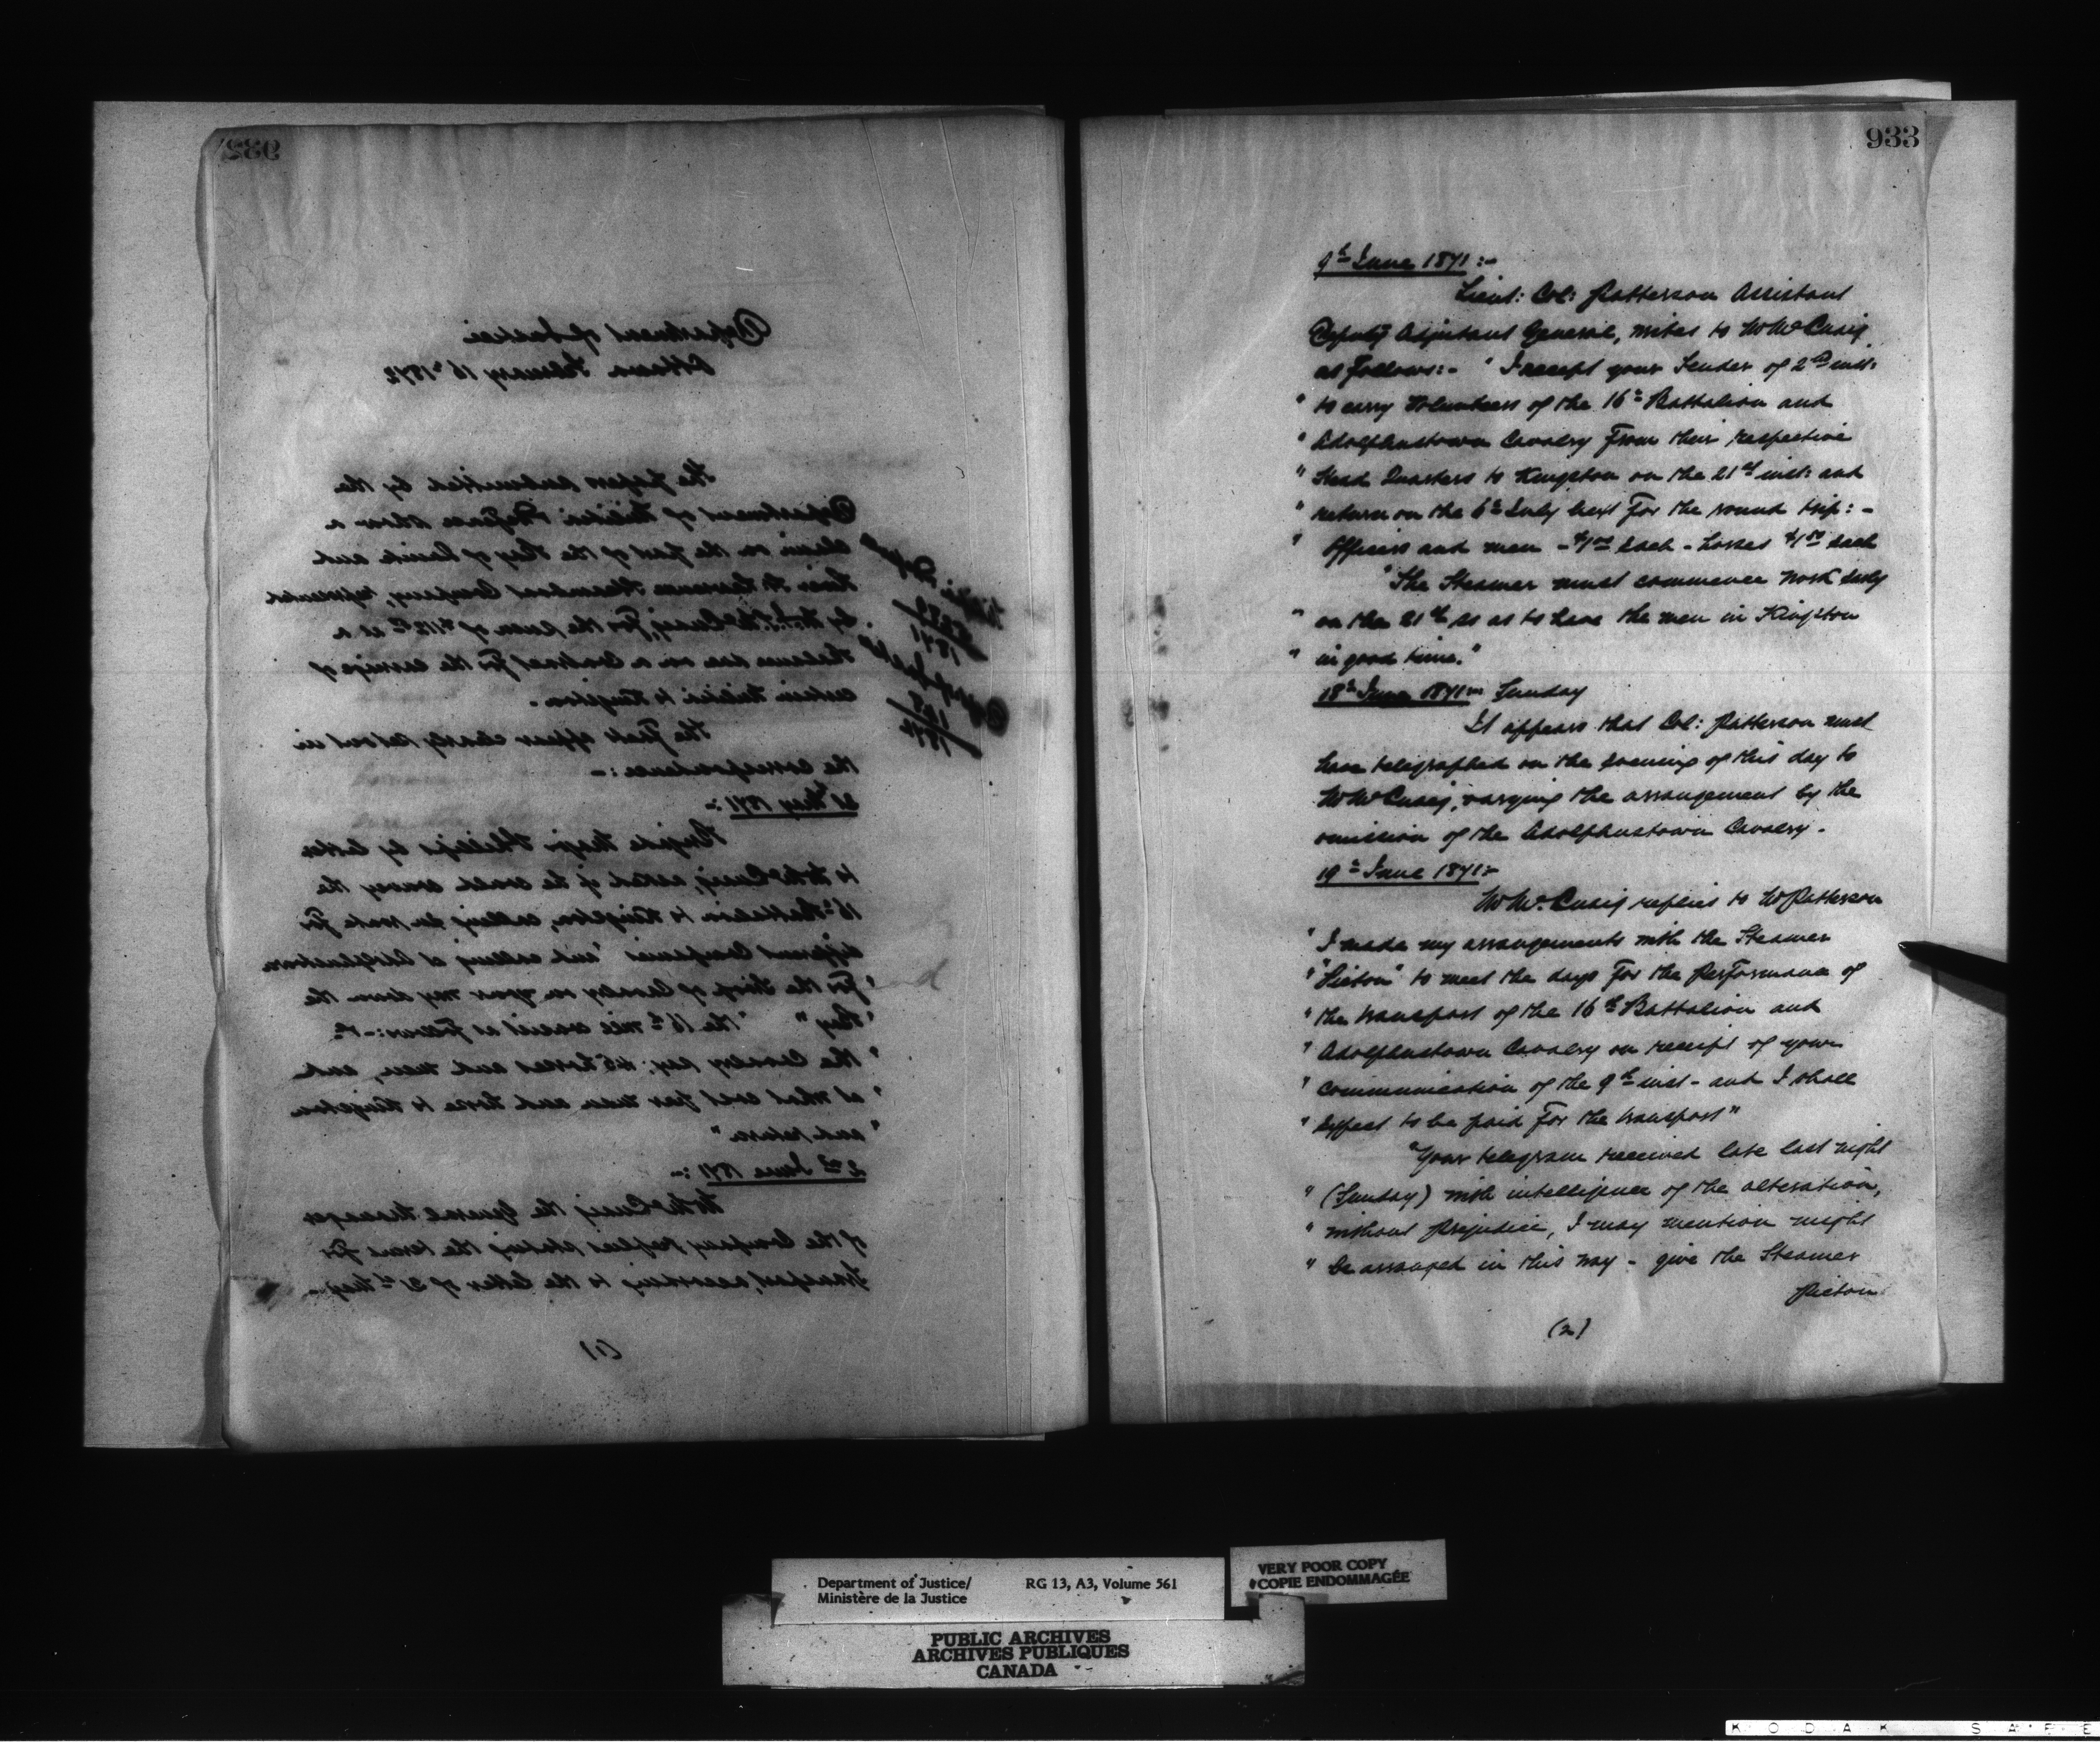 932
Department of Justice
Ottawa February 16th 1872
The papers submitted by the
Department of Militia & Defence show a
claim on the part of the Bay of Quinte and
River St Lawrence Steamboat Company, represented
by Mr McCuaig, for the sum of $112 as a
Balance due on a Contract for the carriage of
certain Militia to Kingston.
The facts appear clearly set out in
the correspondence:-
31st May 1871:-
Brigade Major Phillips by letter
to Mr McCuaig, asked if he could convey the
16th Battalion to Kingston, calling en route for
different Companies "and calling at Adolphustown
"for the troop of Cavalry on your way down the
"Bay" "the 16th will consist as follows:-
"the Cavalry say: 45 horses and men, and
"at what cost per man and horse to Kingston
"and return"
2nd June 1871:-
Mr McCuaig the General Manager
of the Company replies stating the terms for
transport, according to the letter of 31st May-
(1)
933
9th June 1871:-
Lieut: Col: Patterson Assistant
Deputy Adjutant General, writes to Mr McCuaig
as follows:- "I accept your Tender of 2nd inst:
" to carry Volunteers of the 16th Battalion and
" Adolphustown Cavalry from their respective
" Head Quarters to Kingston on the 21st inst: and
" return on the 6th July next for the round trip:-
" Officers and men - $1.00 each - horses $1.50 each
"The Steamer must commence work early
" on the 21st so as to have the men in Kingston
" in good time."
18th June 1871:- Sunday
It appears that Col: Patterson must
have telegraphed on the evening of this day to
Mr McCuaig, varying the arrangement by the
omission of the Adolphustown Cavalry.
19th June 1871:-
Mr McCuaig replies to Mr Patterson
" I made my arrangements with the Steamer
" "Picton" to meet the days for the performance of
" the transport of the 16th Battalion and
" Adolphustown Cavalry on receipt of your
" communication of the 9th inst - and I shall
" expect to be paid for the transport"
"Your telegram received late last night
" (Sunday) with intelligence of the alteration,
" without prejudice, I may mention might
" be arranged in this way - give the Steamer
Picton
(2)
Department of Justice/
Ministère de la Justice
RG 13, A3, Volume 561
VERY POOR COPY
COPIE ENDOMMAGÉE
PUBLIC ARCHIVES
ARCHIVES PUBLIQUES
CANADA
KODAK SAFE